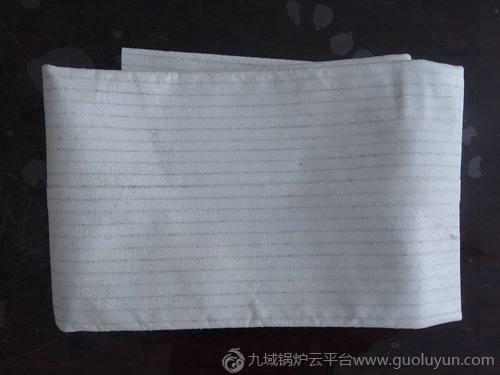 九域锅炉云平台www.guoluyun.com